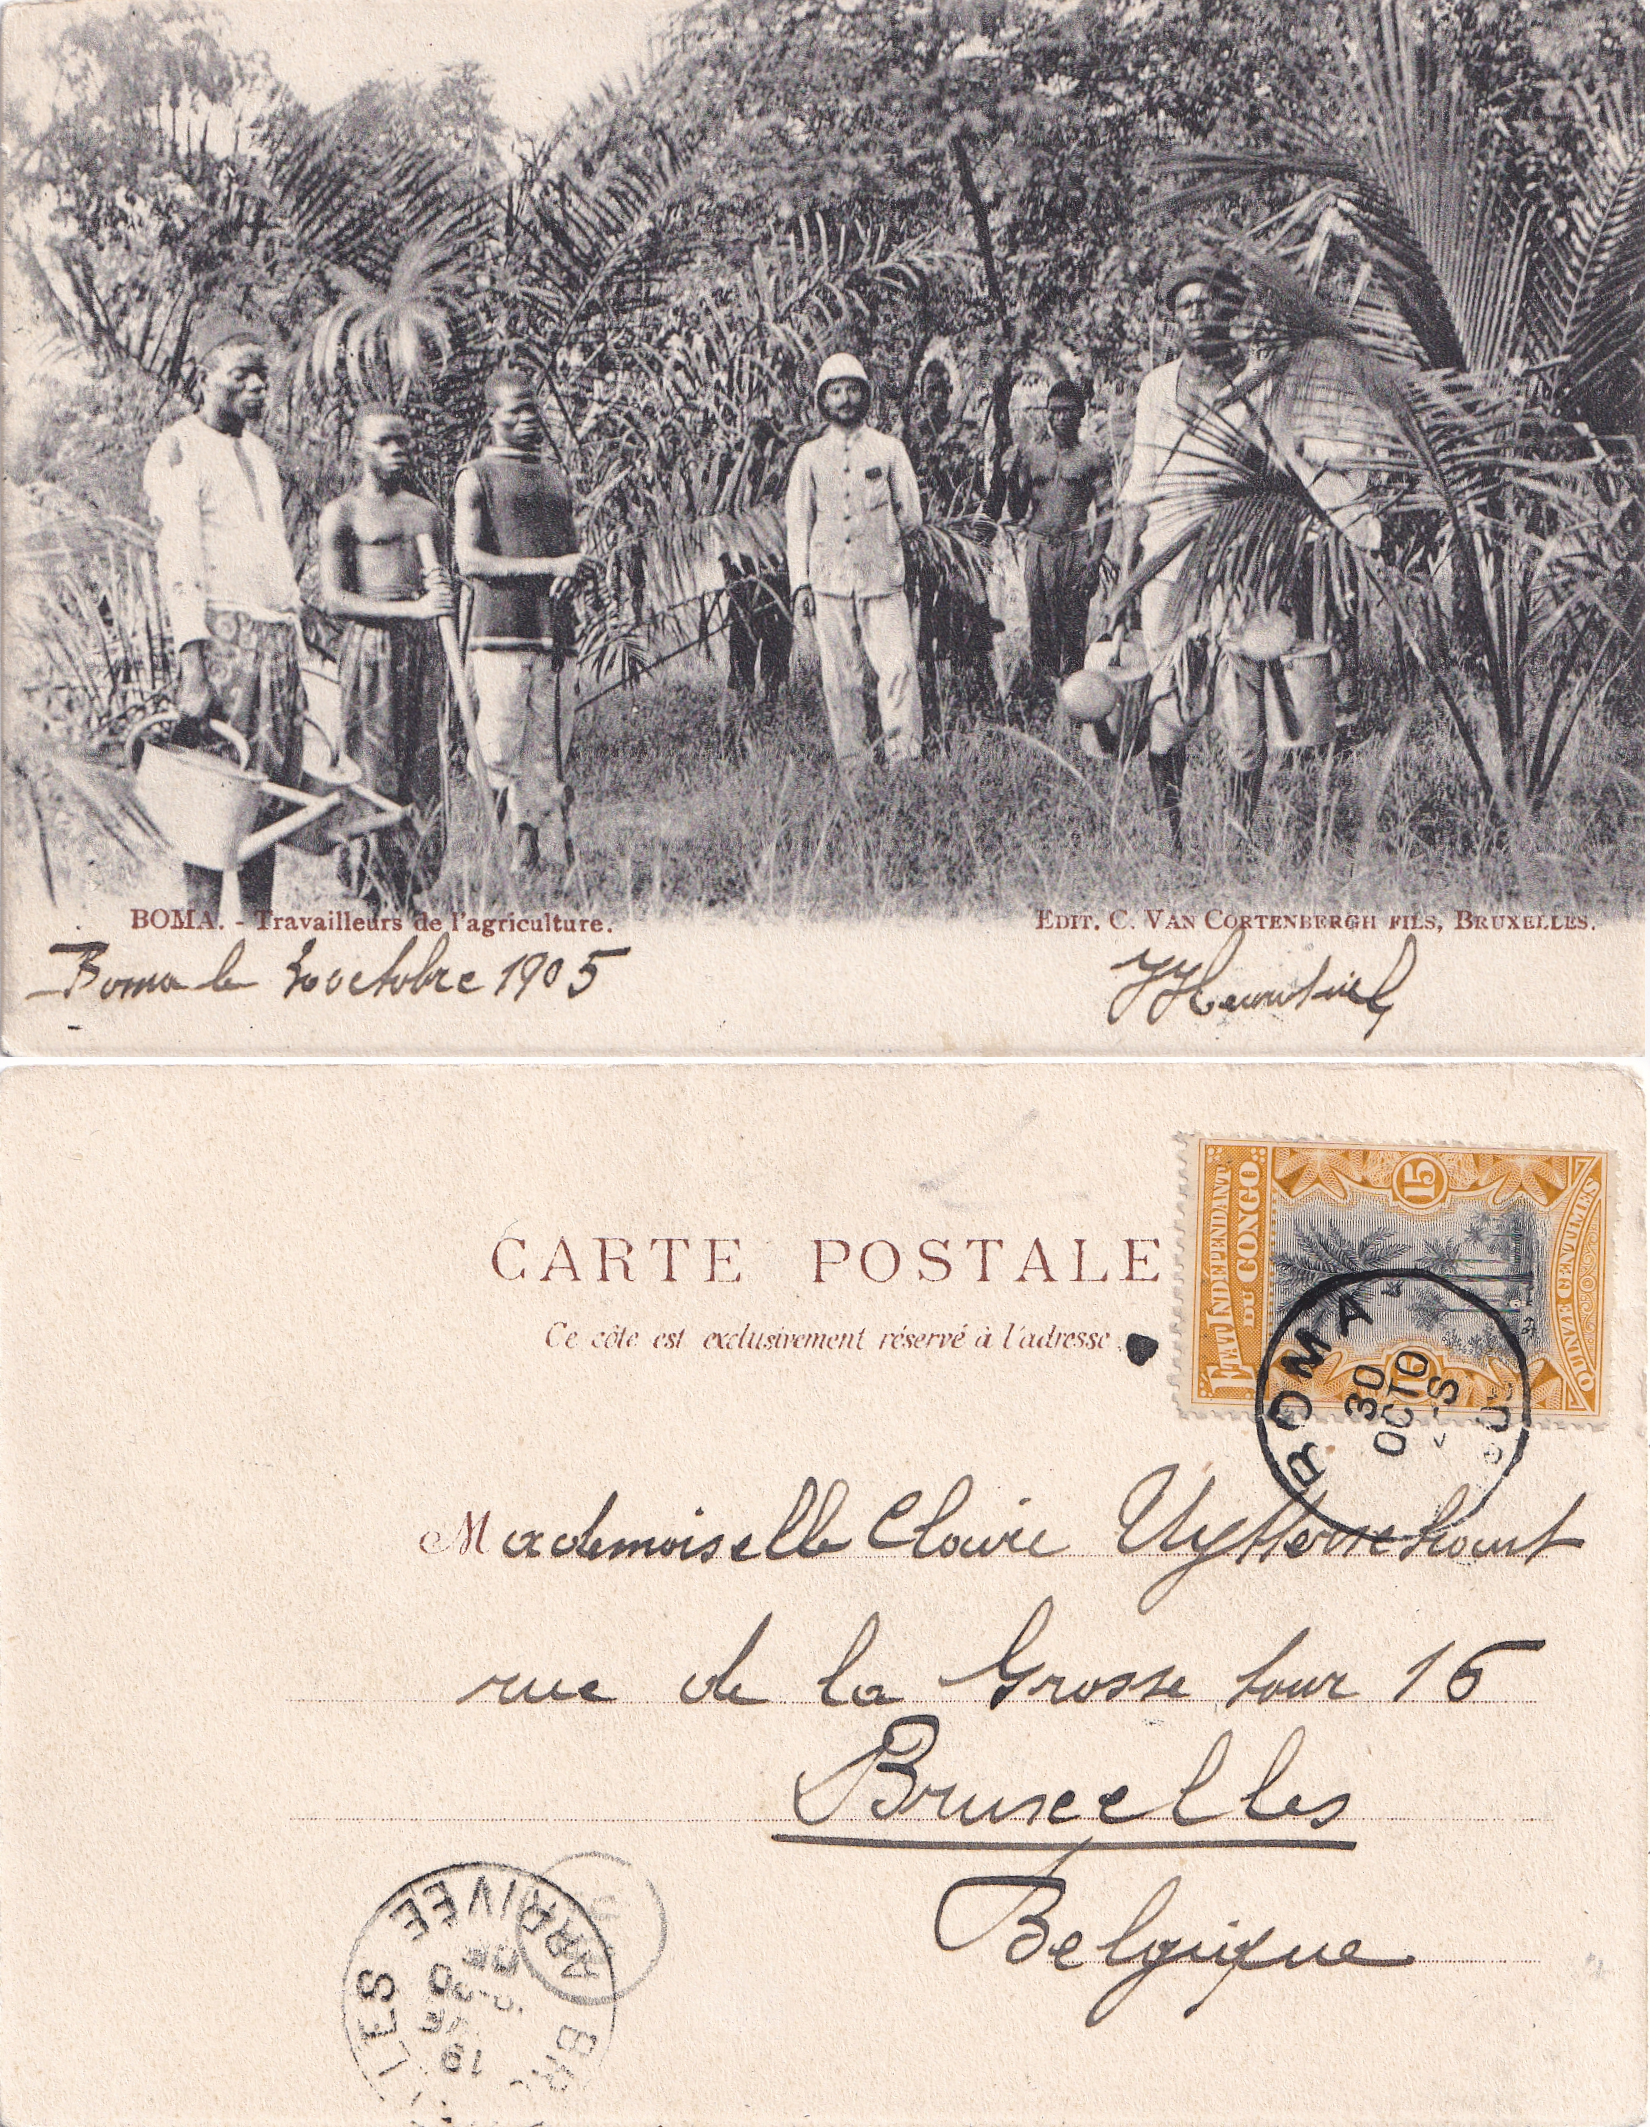 BOMA. - Travailleurs de l'agriculture.
EDIT. C. VAN CORTENBERGH FILS, BRUXELLES.
Boma le octobre 1905
CARTE POSTALE
Ce côte est exclusivement réservé à l'adresse
ETAT INDÉPENDANT
DU CONGO
15
15
QUINZE CENTIMES
BOMA
30
OCTO
Mademoiselle Claire
rue de la Grosse tour 15
Bruxelles
Belgique
ARRIVEE
19